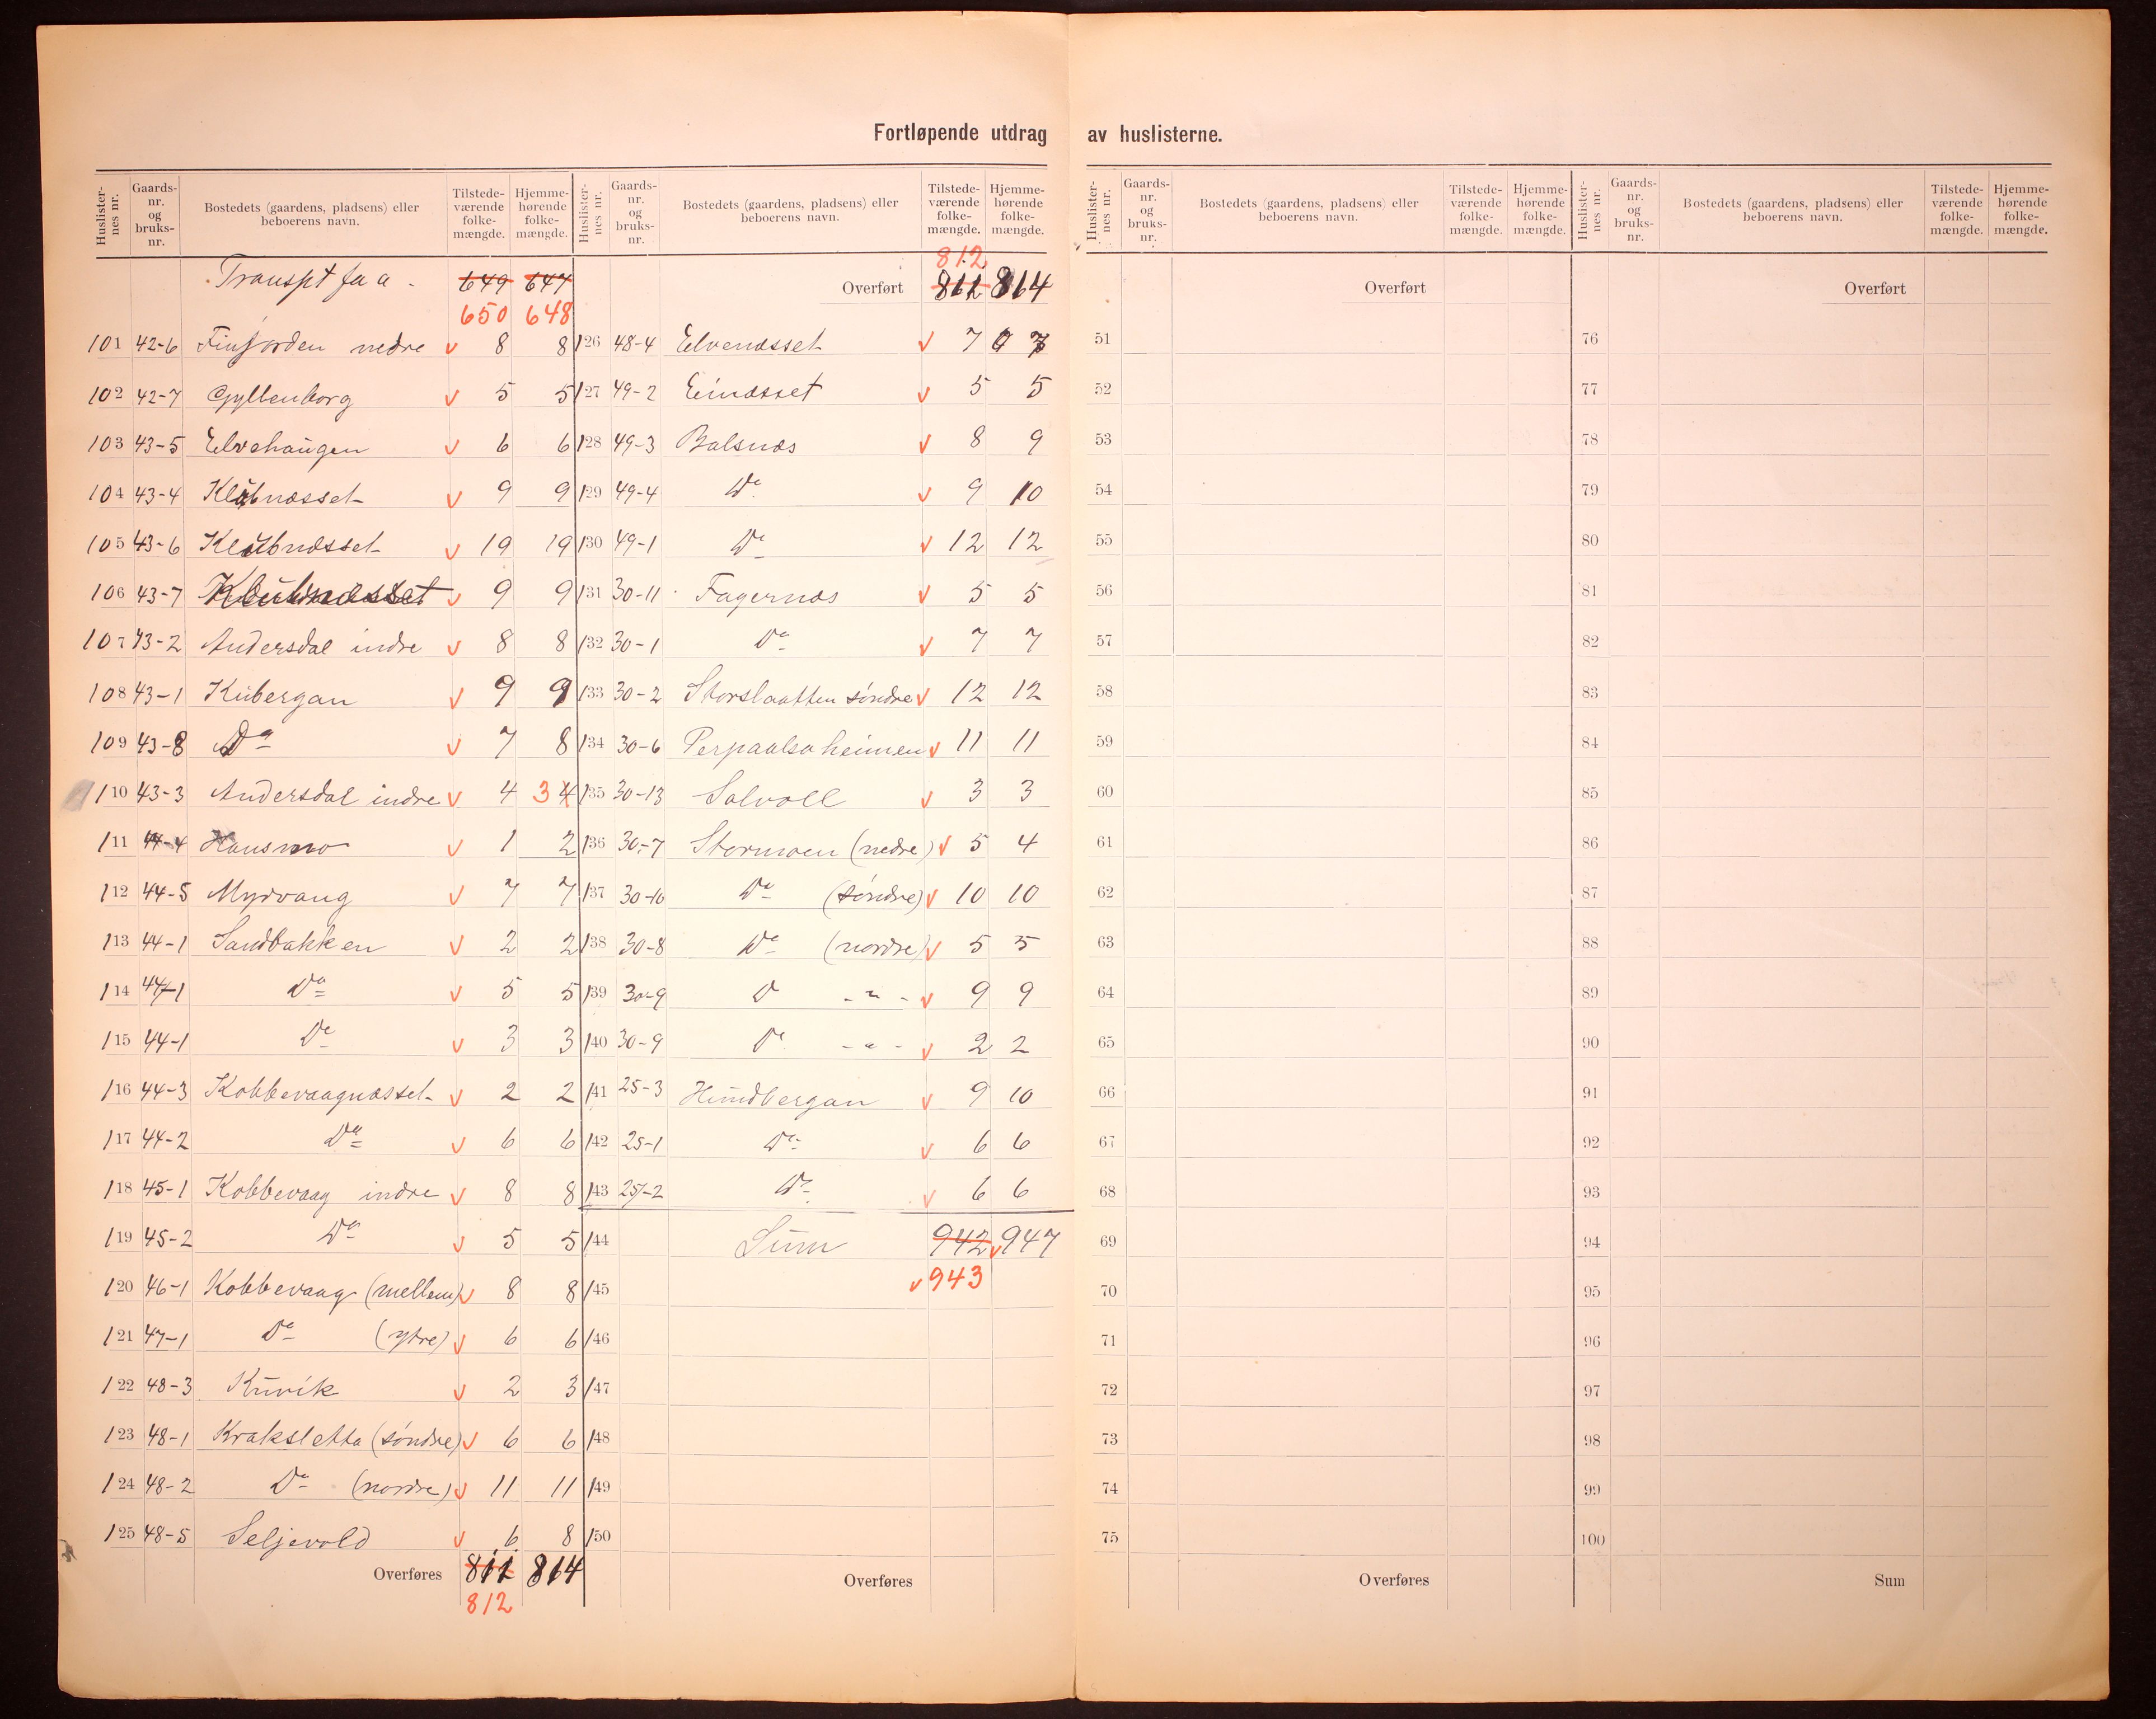 Fortløpende utdrag av huslisterne.
Huslisternes nr. Gaardsnr. og bruksnr. Bostedets (gaardens, pladsens) eller beboerens navn. Tilstedeværende folkemængde. Hjemmehørende folkemængde.
Transpt fra 649 647
650 648
101 42-6 Finfjorden nedre v 8 8
102 42-7 Gyllenborg v 5 5
103 43-5 Elvehaugen v 6 6
104 43-4 Klubnæsset v 9 9
105 43-6 Klubnæsset v 19 19
106 43-7 Klubnæsset v 9 9
107 43-2 Andersdal indre v 8 8
108 43-1 Kubergan v 9 9
109 43-8 Do v 7 8
110 43-3 Andersdal indre v 4 3 4
111 44-4 Hansmo v 1 2
112 44-5 Myrvang v 7 7
113 44-1 Sandbakken v 2 2
114 44-1 Do v 5 5
115 44-1 Do v 3 3
116 44-3 Kobbevaagnæsset v 2 2
117 44-2 Do v 6 6
118 45-1 Kobbevaag indre v 8 8
119 45-2 Do v 5 5
120 46-1 Kobbevaag (mellem) v 8 8
121 47-1 Do (ytre) v 6 6
122 48-3 Kuvik v 2 3
123 48-1 Draksletta (søndre) v 6 6
124 48-2 Do (nordre) v 11 11
125 48-5 Seljevold v 6 8
Overføres 811 814
812
Huslisternes nr. Gaardsnr. og bruksnr. Bostedets (gaardens, pladsens) eller beboerens navn. Tilstedeværende folkemængde. Hjemmehørende folkemængde.
812
Overført 811 814
126 48-4 Elvenæsset v 7 7
127 49-2 Einæsset v 5 5
128 49-3 Balsnæs v 8 9
129 49-4 Do v 9 10
130 49-1 Do v 12 12
131 30-11 Fagernæs v 5 5
132 30-1 Do v 7 7
133 30-2 Storslaatten søndre v 12 12
134 30-6 Perpaalsaheimen v 11 11
135 30-13 Solvoll v 3 3
136 30-7 Stormoen (nedre) v 5 4
137 30-10 Do (søndre) v 10 10
138 30-8 Do (nordre) v 5 5
139 30-9 D - " - v 9 9
140 30-9 Do - " - v 2 2
141 25-3 Hundbergan v 9 10
142 25-1 Do v 6 6
143 25-2 Do v 6 6
144 Sum 942 v 947
145 v 943
146
147
148
149
150
Overføres
Huslisternes nr. Gaardsnr. og bruksnr. Bostedets (gaardens, pladsens) eller beboerens navn. Tilstedeværende folkemængde. Hjemmehørende folkemængde.
Overført
51
52
53
54
55
56
57
58
59
60
61
62
63
64
65
66
67
68
69
70
71
72
73
74
75
Overføres
Huslisternes nr. Gaardsnr. og bruksnr. Bostedets (gaardens, pladsens) eller beboerens navn. Tilstedeværende folkemængde. Hjemmehørende folkemængde.
Overført
76
77
78
79
80
81
82
83
84
85
86
87
88
89
90
91
92
93
94
95
96
97
98
99
100
Sum